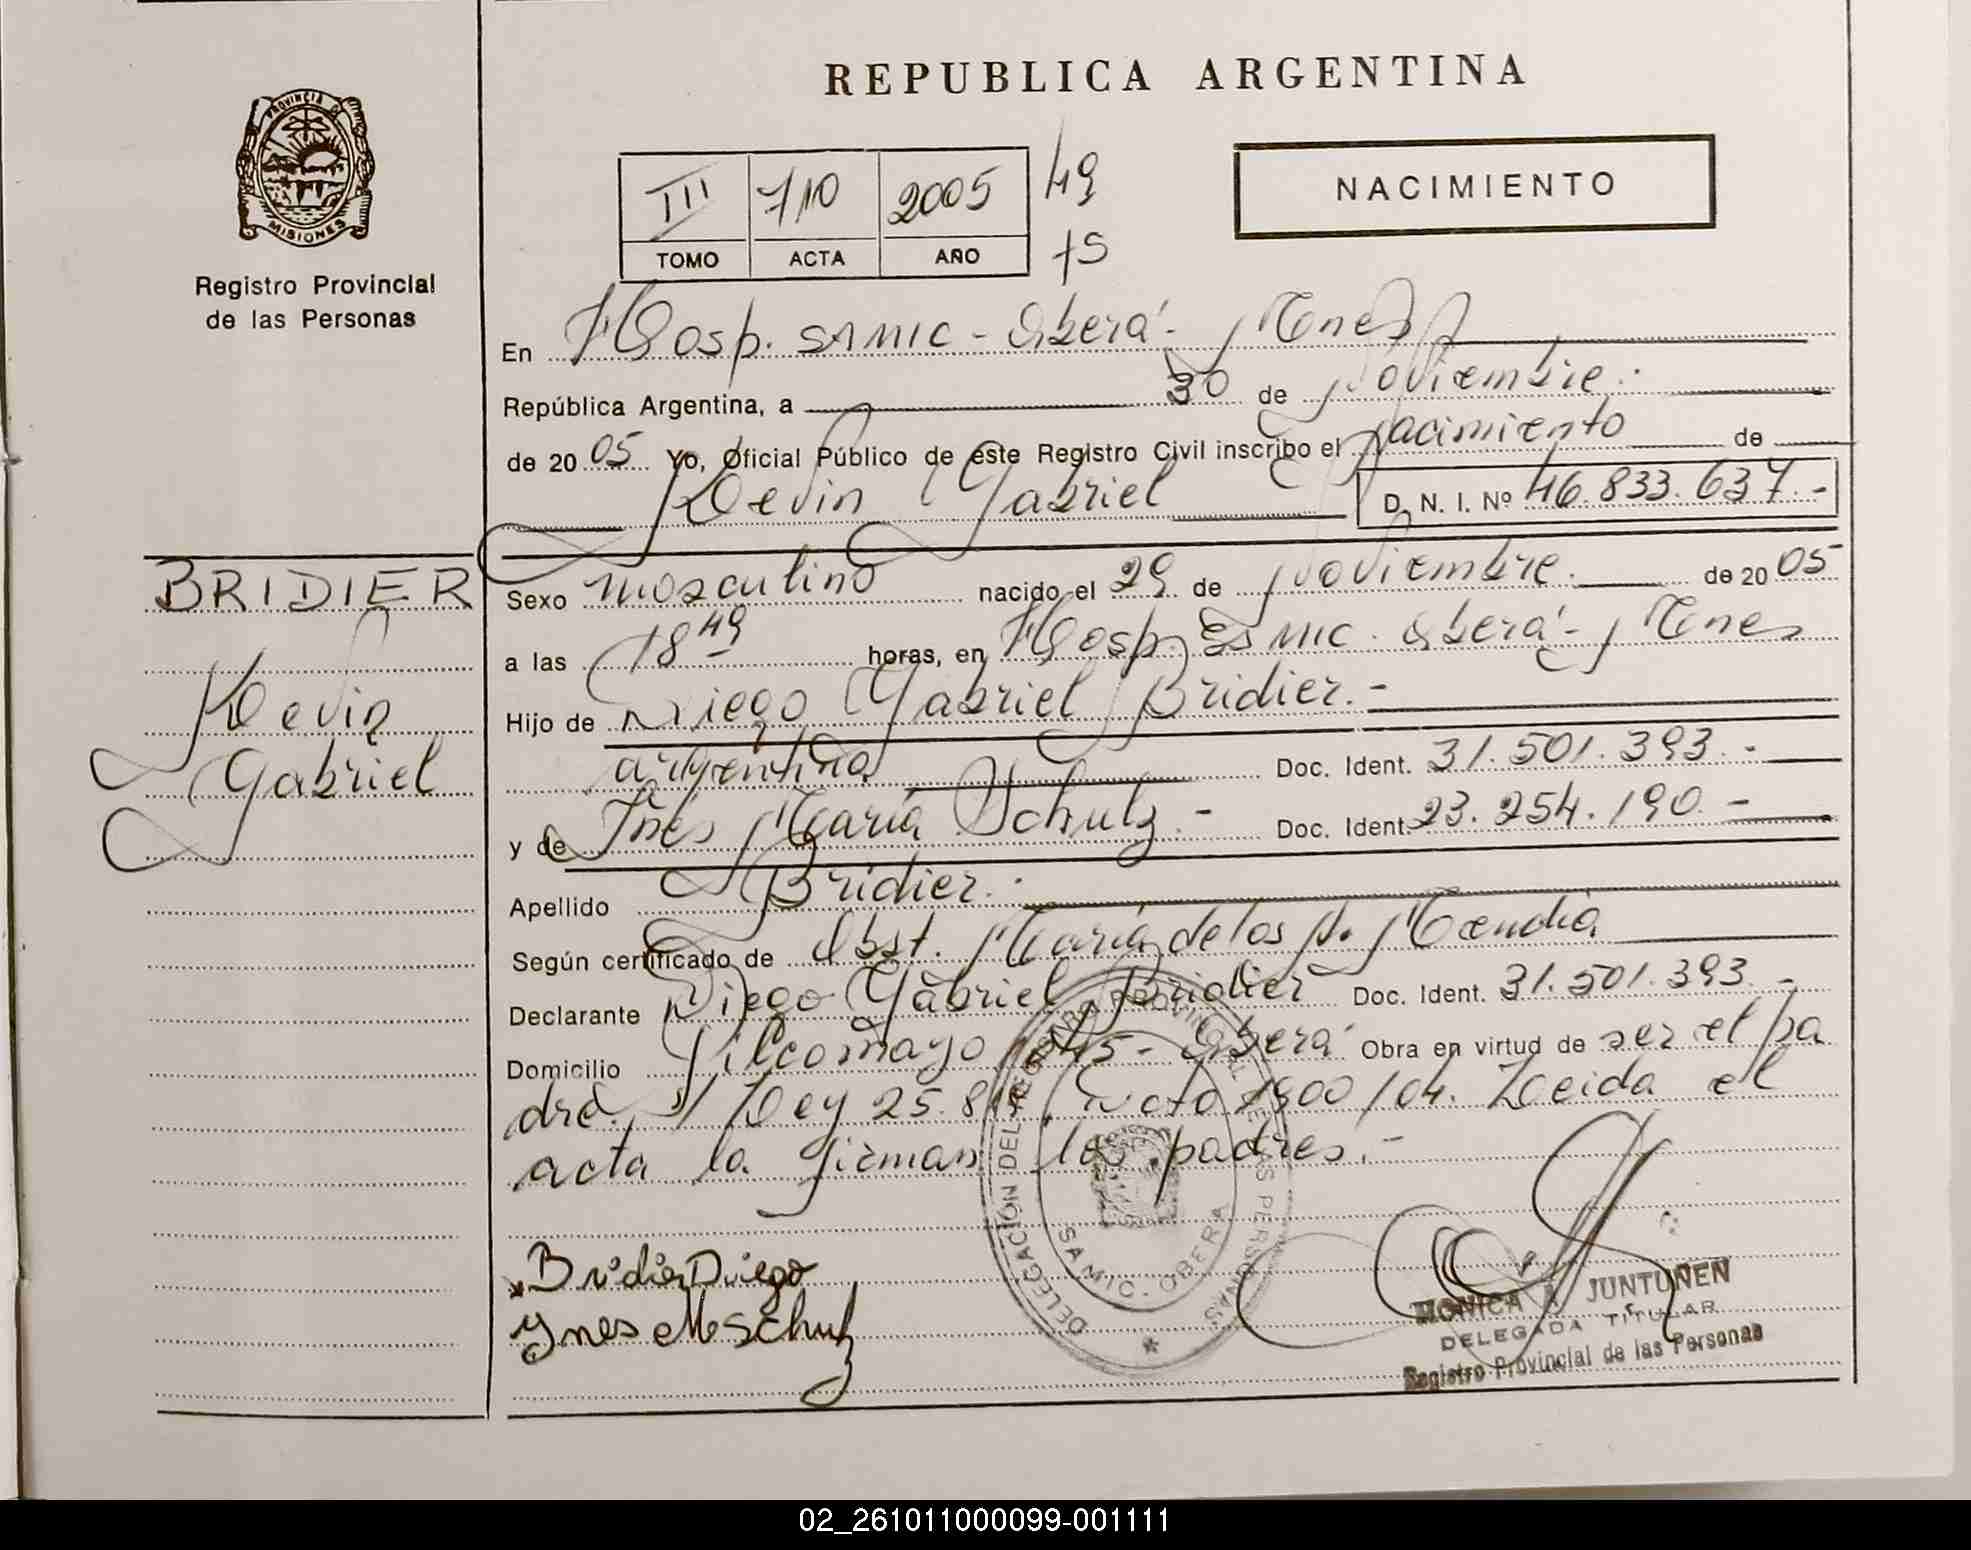 REPUBLICA ARGENTINA
PROVINCIA DE
MISIONES
Registro Provincial
de las Personas
III 710 2005 49
TOMO ACTA AÑO 75
NACIMIENTO
En Hosp. SAMIC - Oberá - Mnes
República Argentina, a 30 de Noviembre.
de 20 05 Yo, Oficial Público de este Registro Civil inscribo el Nacimiento de
Kevin Gabriel D. N. I. Nº 46.833.637.-
BRIDIER
Kevin
Gabriel
Sexo masculino nacido el 29 de Noviembre. de 20 05
a las 18 49 horas, en Hosp. SAMIC. Oberá - Mnes
Hijo de Diego Gabriel Bridier.-
argentina Doc. Ident. 31.501.393.-
y de Inés María Schulz.- Doc. Ident. 23.254.190.-
Apellido Bridier.-
Según certificado de Obst. María de los A. Mendia
Declarante Diego Gabriel Bridier Doc. Ident. 31.501.393.-
Domicilio Pilcomayo Oberá Obra en virtud de ser el pa
dre. s/ Ley 25.819, Dcto 1900/04. Leida el
acta la firman los padres.-
Bridier Diego
Ynes M Schulz
DELEGACIÓN DEL REGISTRO PROVINCIAL DE LAS PERSONAS
SAMIC - OBERA
MONICA JUNTUNEN
DELEGADA TITULAR
Registro Provincial de las Personas
02_261011000099-001111